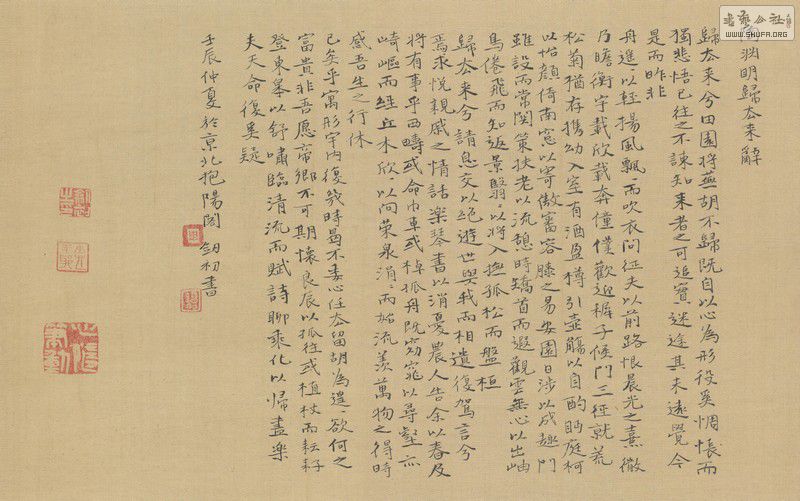 书艺公社
WWW.SHUFA.ORG
渊明歸去来辭
歸去来兮田園将蕪胡不歸既自以心為形役奚惆悵而
獨悲悟已往之不諫知来者之可追實迷途其未遠覺今
是而昨非
舟遥以輕揚風飄〻而吹衣問征夫以前路恨晨光之熹微
乃瞻衡宇載欣載奔僮僕歡迎稚子候門三徑就荒
松菊猶存携幼入室有酒盈樽引壺觴以自酌眄庭柯
以怡顔倚南窓以寄傲審容膝之易安園日涉以成趣門
雖設而常関策扶老以流憩時矯首而遐觀雲無心以出岫
鳥倦飛而知返景翳〻以将入撫孤松而盤桓
歸去来兮請息交以絶遊世與我而相遺復駕言兮
焉求悦親戚之情話楽琴書以消憂農人告余以春及
将有事乎西疇或命巾車或棹孤舟既窈窕以尋壑亦
崎嶇而經丘木欣以向荣泉涓〻而始流羡萬物之得時
感吾生之行休
已矣乎寓形宇内復幾時曷不委心任去留胡為遑〻欲何之
富貴非吾愿帝鄉不可期懐良辰以孤往或植杖而耘耔
登東皋以舒嘯臨清流而賦詩聊乘化以帰盡樂
夫天命復奚疑
壬辰仲夏於京北抱陽閣 剑初書